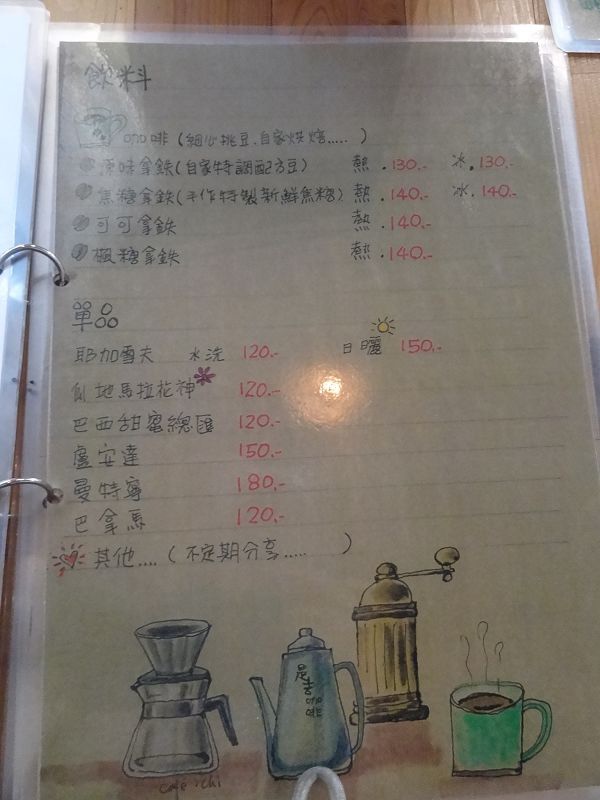 飲料
咖啡(細心挑豆.自家烘焙.....)
原味拿鉄(自家特調配方豆) 熱.130.- 冰.130.-
焦糖拿鉄(手作特製新鮮焦糖) 熱.140.- 冰.140.-
可可拿鉄 熱.140.-
楓糖拿鉄 熱.140.-
單品
耶加雪夫 水洗 120.- 日曬 150.-
瓜地馬拉花神 120.-
巴西甜蜜總匯 120.-
盧安達 150.-
曼特寧 180.-
巴拿馬 120.-
其他....(不定期分享.....)
咖啡
cafe ichi